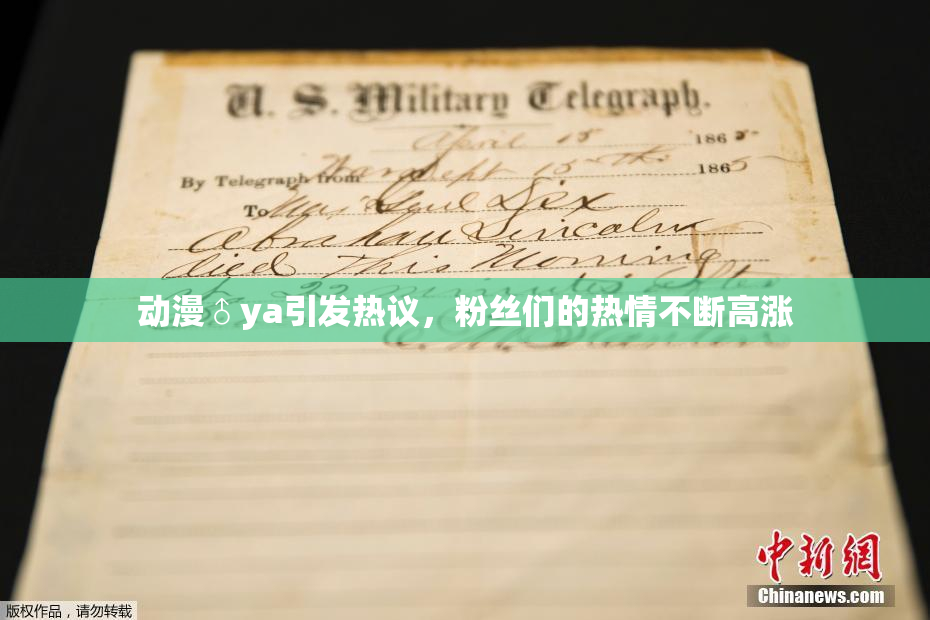 U. S. Military Telegraph.
April 15 1865
By Telegraph from War Dept 15th 1865
To Maj Genl Dix
Abraham Lincoln
died This Morning
22 minutes after
动漫♂ya引发热议，粉丝们的热情不断高涨
中新网
Chinanews.com
版权作品，请勿转载